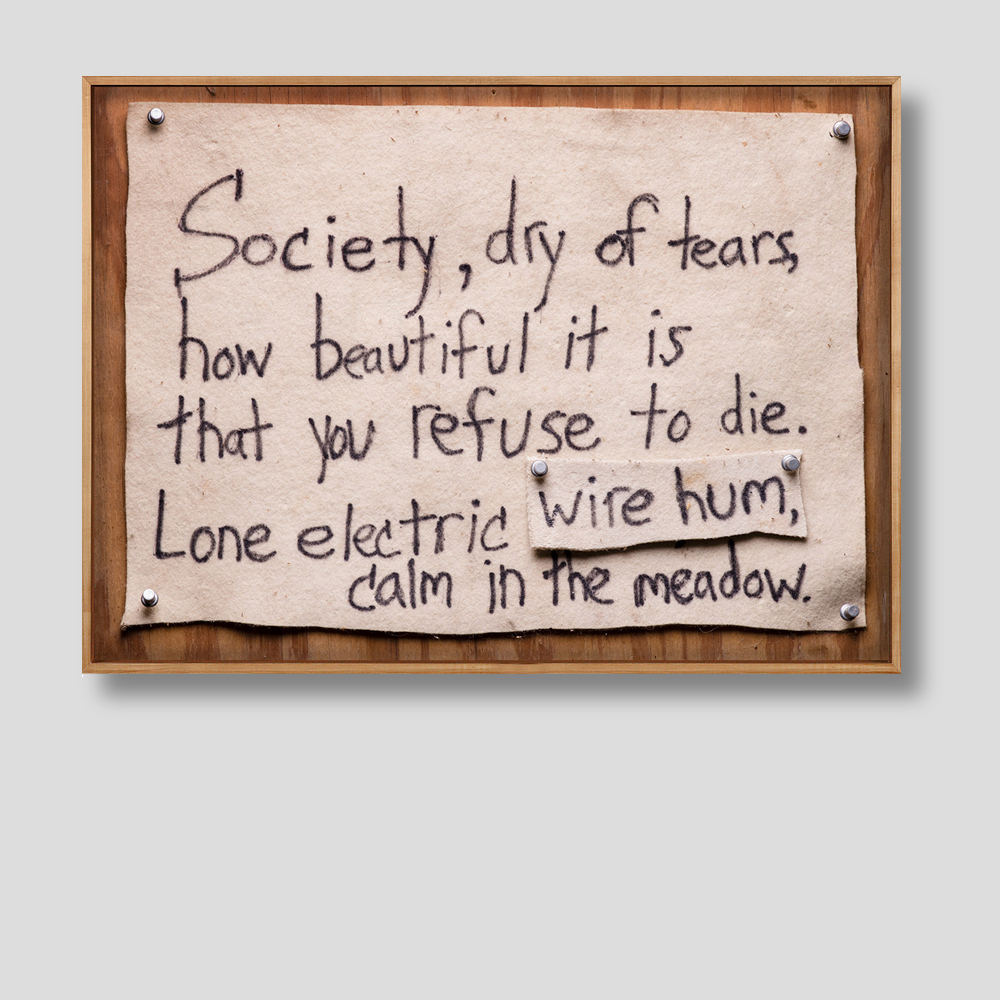 Society, dry of tears,
how beautiful it is
that you refuse to die.
Lone electric wire hum,
calm in the meadow.